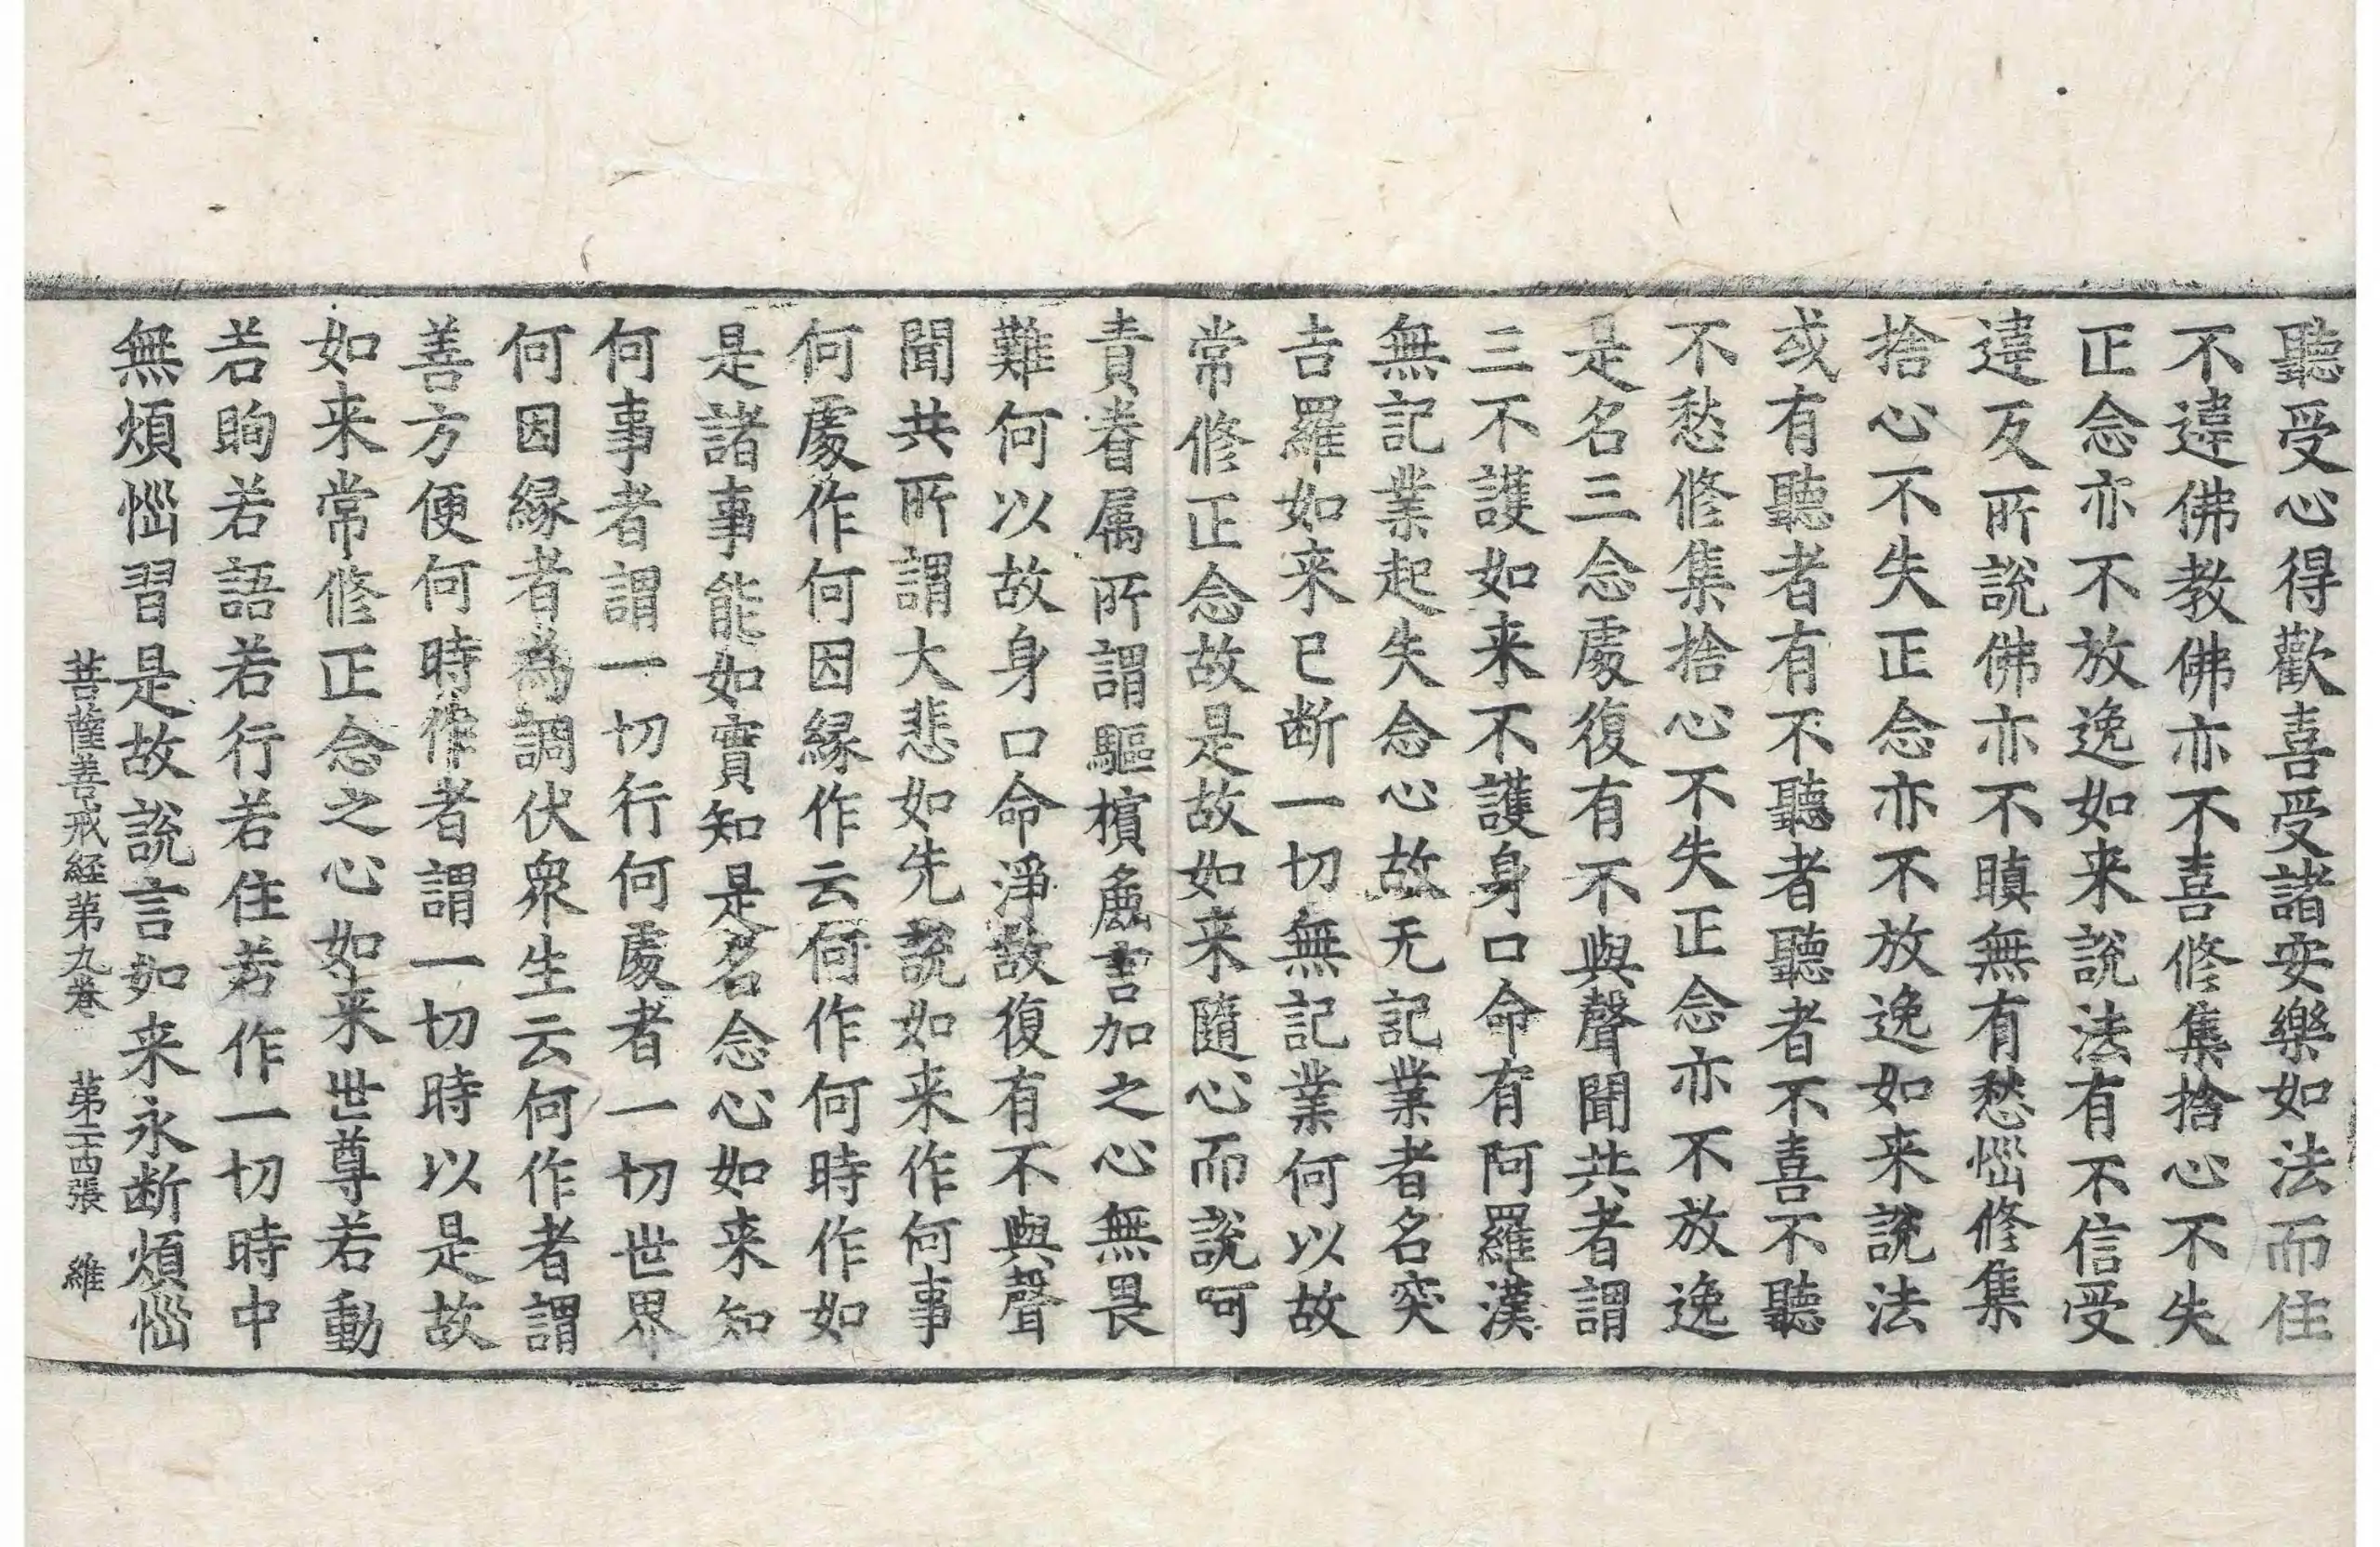 聽受心得歡喜受諸安樂如法而住
不違佛教佛亦不喜修集捨心不失
正念亦不放逸如来說法有不信受
違反所說佛亦不瞋無有愁惱修集
捨心不失正念亦不放逸如来說法
或有聽者有不聽者聽者不喜不聽
不愁修集捨心不失正念亦不放逸
是名三念處復有不與聲聞共者謂
三不護如来不護身口命有阿羅漢
無記業起失念心故无記業者名突
吉羅如来已断一切無記業何以故
常修正念故是故如来隨心而說呵
責眷属所謂驅擯麁言加之心無畏
難何以故身口命淨故復有不與聲
聞共所謂大悲如先說如来作何事
何處作何因縁作云何作何時作如
是諸事能如實知是名念心如来知
何事者謂一切行何處者一切世界
何因縁者為調伏衆生云何作者謂
善方便何時作者謂一切時以是故
如来常修正念之心如来世尊若動
若眴若語若行若住若作一切時中
無煩惱習是故說言如来永断煩惱
菩薩善戒経第九卷 第二十四張 維